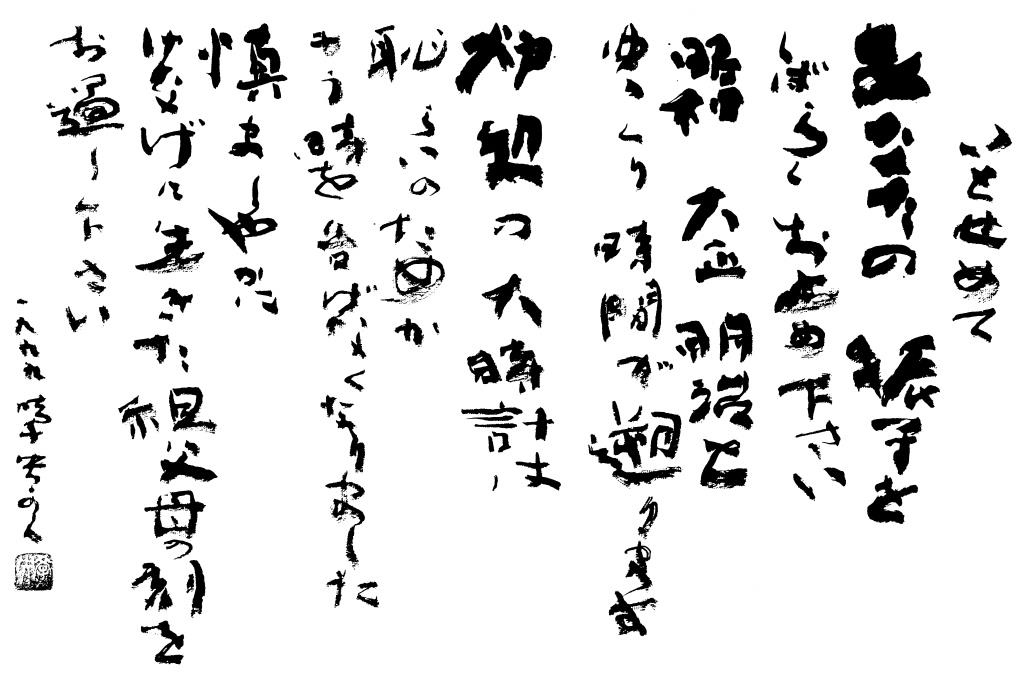 いとせめて
あなたの 振子を
しばらく お止め下さい
昭和 大正 明治と
ゆっくり 時間が 遡ります
の大時計は
恥らいのためか
もう時を告げなくなりました
慎ましやかに
けなげに生きた祖父母の刻を
お し下さい
一九九九